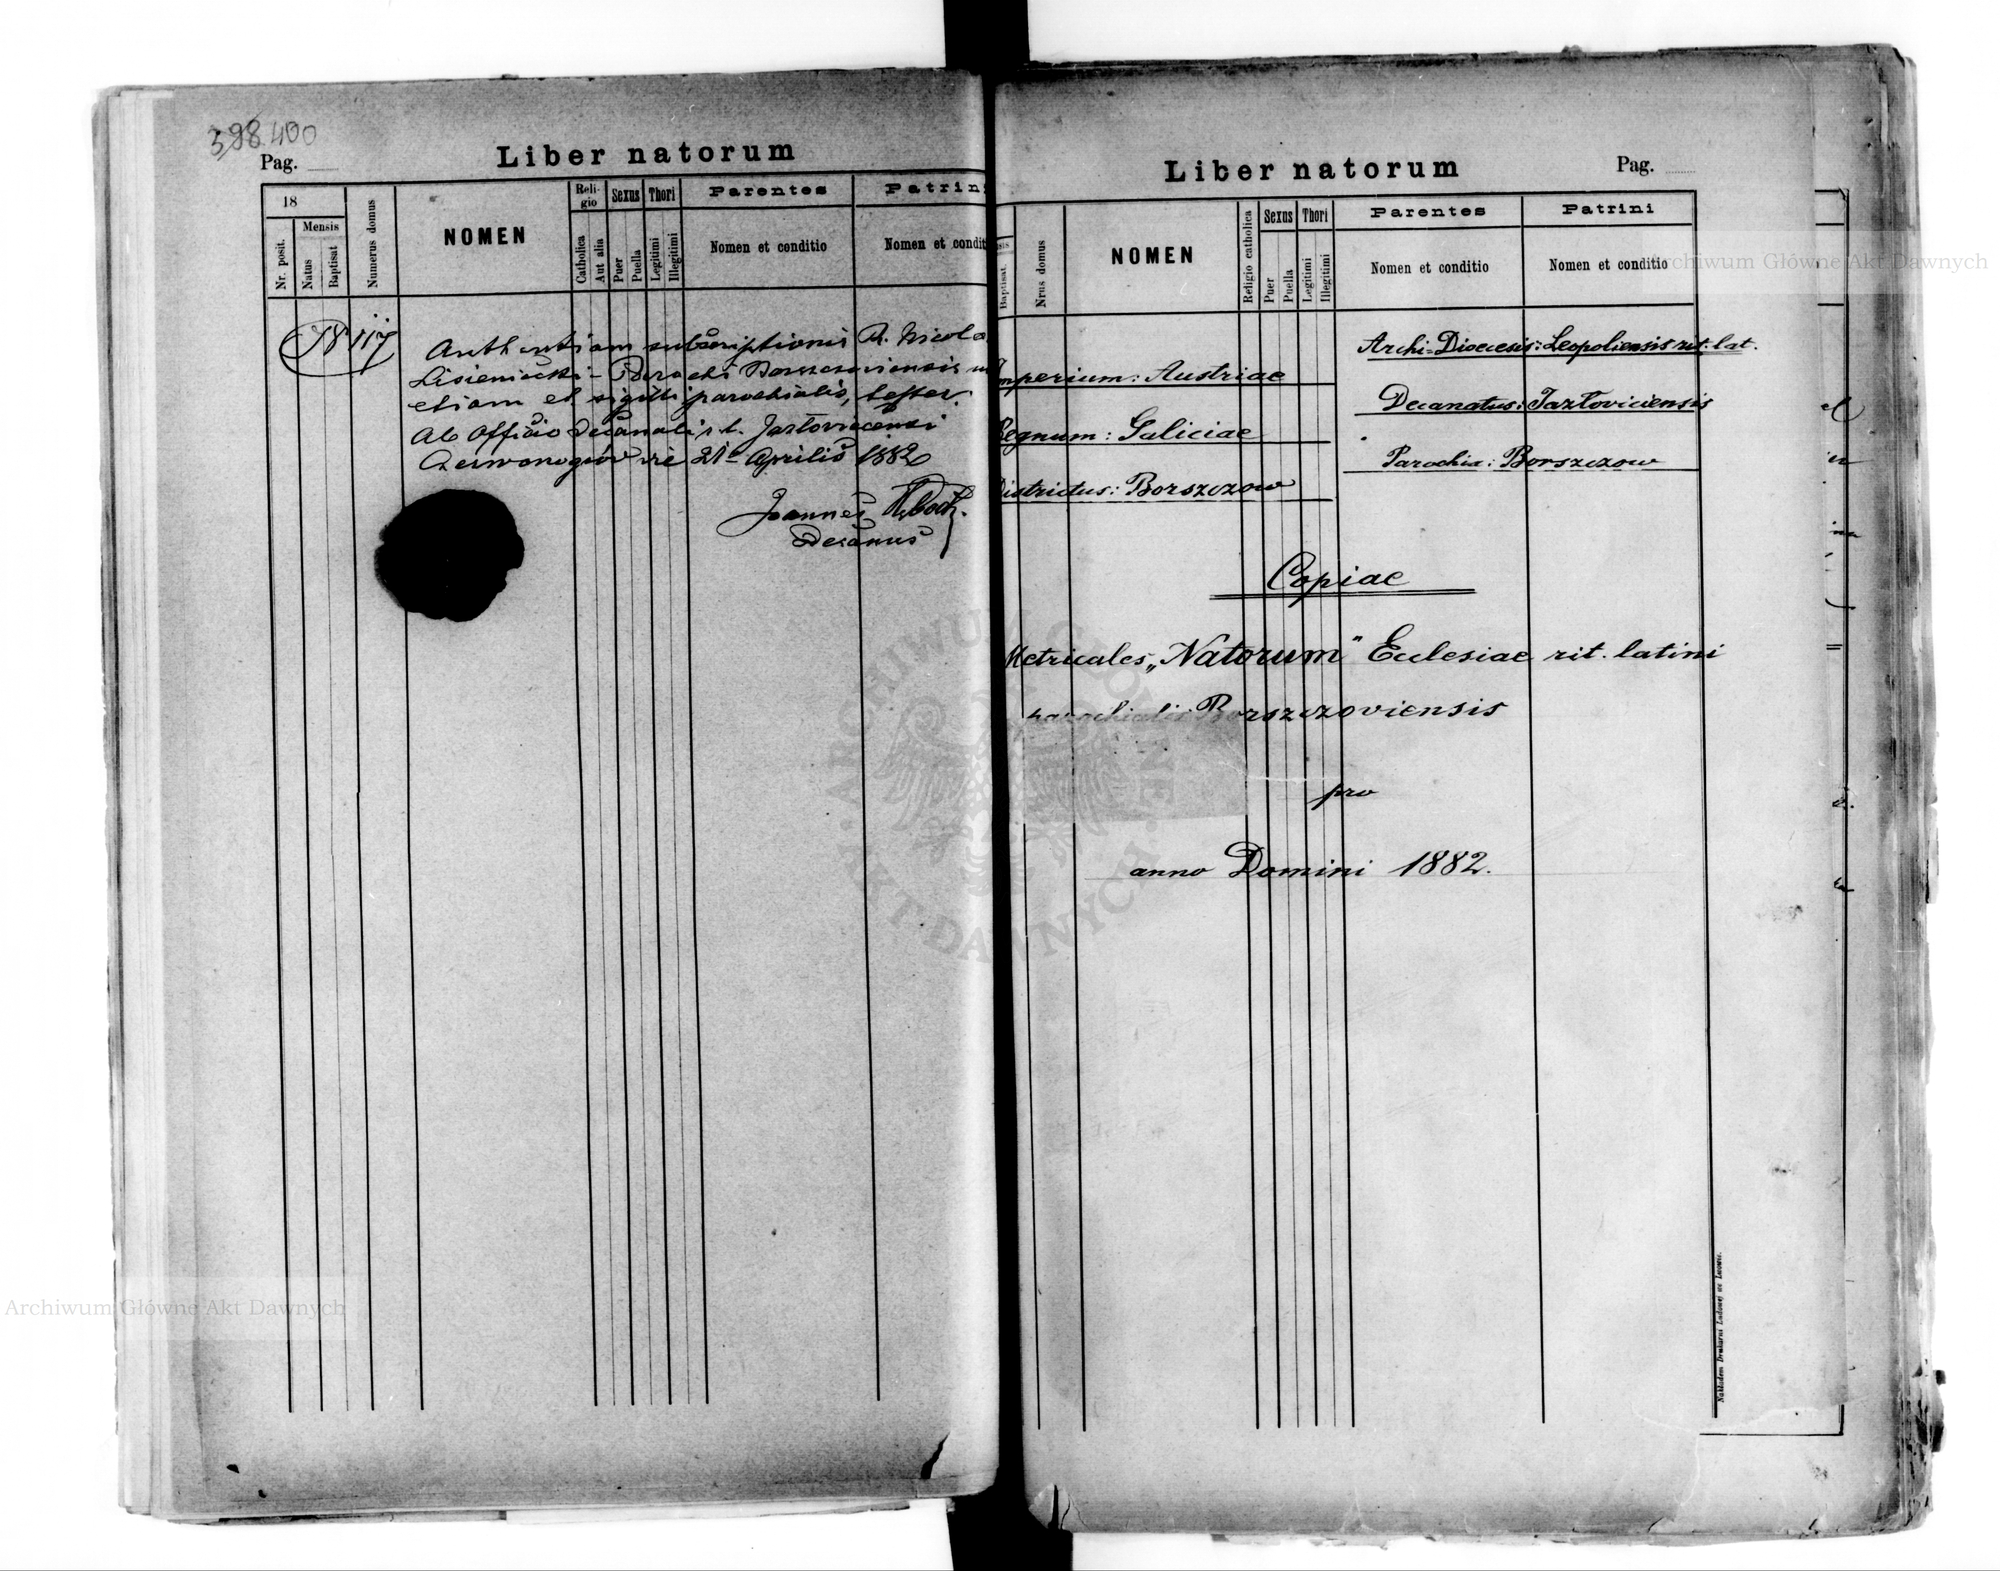 398 400
Pag.
Liber natorum
18
Mensis
Nr. posit.
Natus
Baptisat
Numerus domus
NOMEN
Reli-
gio
Catholica
Aut alia
Sexus
Puer
Puella
Thori
Legitimi
Illegitimi
Parentes
Nomen et conditio
Patrini
Nomen et condit
N 117
Authentiam subscriptionis R. Nicola
Lisieniecki Parochi Borszczoviensis
etiam et sigilli parochialis, testor.
Ab Officio Decanali r. l. Jazłovicensi
die 21 Aprilis 1882
Joannes
Decanus
Liber natorum
Pag.
Baptisat.
Nrus domus
NOMEN
Religio catholica
Sexus
Puer
Puella
Thori
Legitimi
Illegitimi
Parentes
Nomen et conditio
Patrini
Nomen et conditio
Imperium: Austriae
Regnum: Galiciae
Districtus: Borszczow
Archi-Dioecesis: Leopoliensis rit. lat.
Decanatus: Jazłoviciensis
Parochia: Borszczow
Copiae
Metricales „Natorum" Ecclesiae rit. latini
parochialis Borszczoviensis
pro
anno Domini 1882.
Nakładem Drukarni Ludowej we Lwowie.
Archiwum Główne Akt Dawnych
Archiwum Główne Akt Dawnych
ARCHIWUM GŁÓWNE AKT DAWNYCH